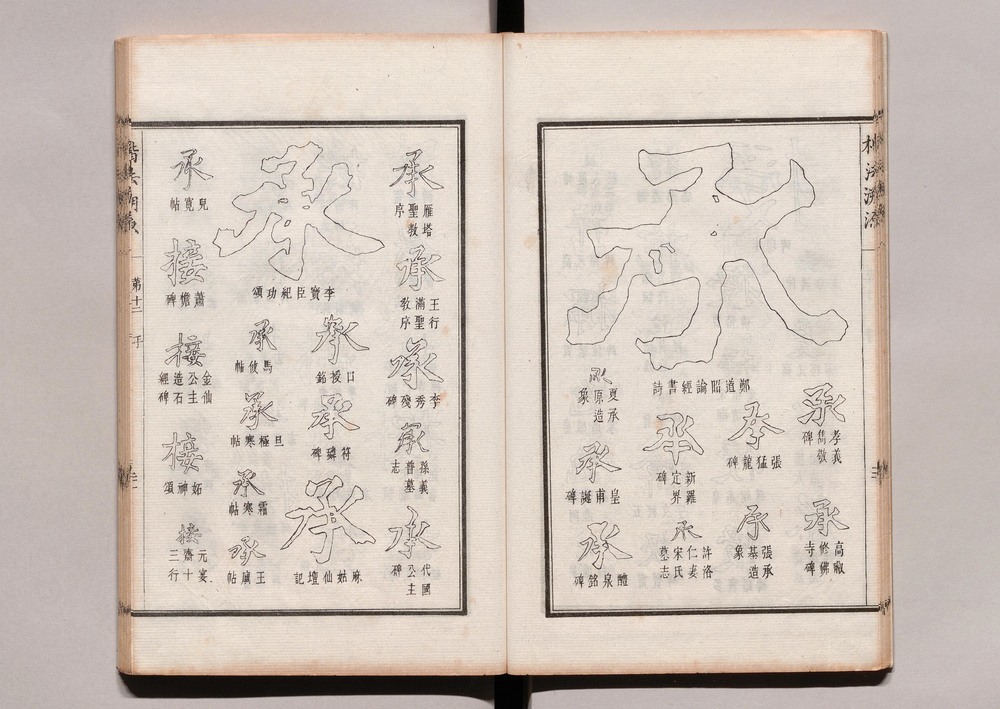 承
孝義
雋敬
碑
承
高
修佛
寺碑
承
張猛龍碑
承
張承
基造
象
承
鄭道昭論經書詩
承
新羅
定界
碑
承
許洛
仁妻
宋氏
墓志
承
夏承
原造
象
承
皇甫誕碑
承
醴泉銘碑
承
雁塔
聖教
序
承
王行
滿聖
教序
承
李秀殘碑
承
孫義
普墓
志
承
代國
公主
碑
承
李寶臣紀功頌
承
口授銘
承
符璘碑
承
麻姑仙壇記
承
馬伏帖
承
旦極寒帖
承
霜寒帖
承
王廙帖
承
兒寬帖
接
蕭憺碑
接
金仙
公主
造石
經碑
接
妬神頌
接
元宴
齋十
三行
第十二